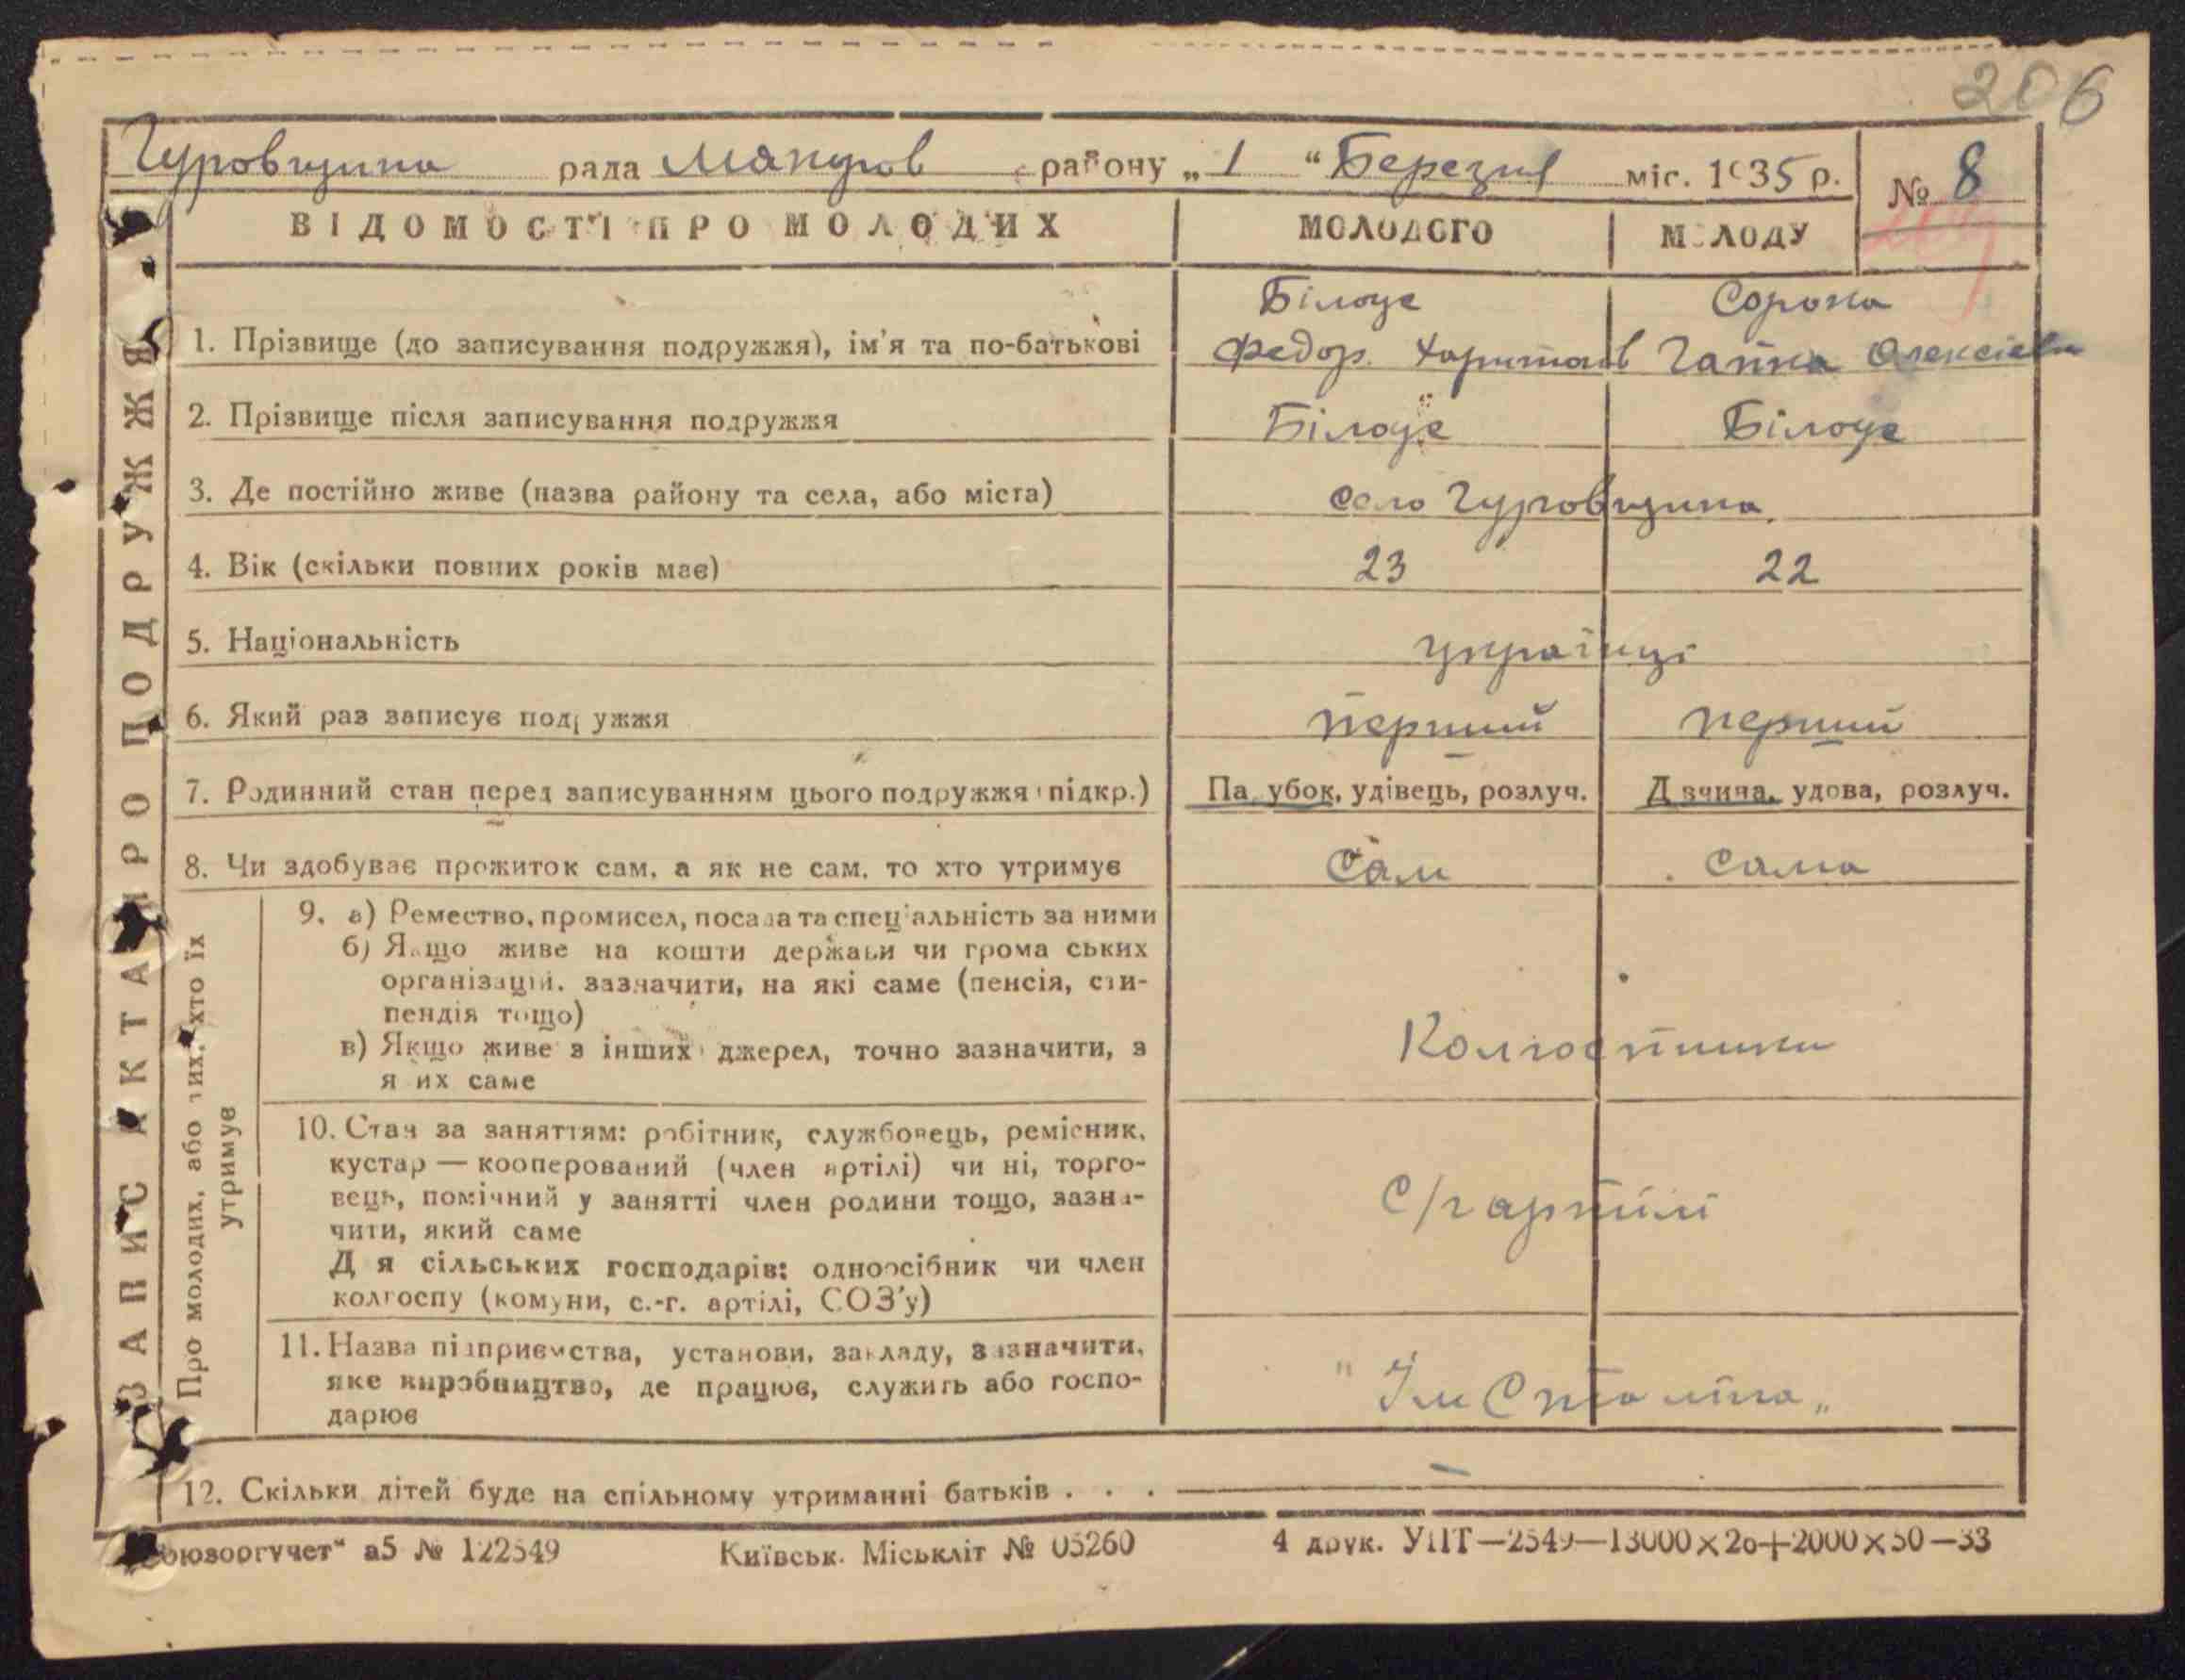 206
Гуровщина рада Макаров району „ 1 “ Березня міс. 1935 р.
№ 8
ВІДОМОСТІ ПРО МОЛОДИХ
МОЛОДОГО
МОЛОДУ
ЗАПИС АКТА ПРО ПОДРУЖЖЯ
Білоус
Сорока
1. Прізвище (до записування подружжя), ім’я та по-батькові
Федор. Харитонів
Ганна Олексієвн
2. Прізвище після записування подружжя
Білоус
Білоус
3. Де постійно живе (назва району та села, або міста)
село Гуровщина.
4. Вік (скільки повних років має)
23
22
5. Національність
українці
6. Який раз записує подружжя
перший
перший
7. Родинний стан перед записуванням цього подружжя (підкр.)
Парубок, удівець, розлуч.
Дівчина, удова, розлуч.
8. Чи здобуває прожиток сам, а як не сам, то хто утримує
Сам
Сама
Про молодих, або тих, хто їх
утримує
9. а) Ремество, промисел, посада та спеціальність за ними
б) Якщо живе на кошти держави чи громадських
організацій, зазначити, на які саме (пенсія, сти-
пендія тощо)
в) Якщо живе з інших джерел, точно зазначити, з
яких саме
Колгоспники
10. Стан за заняттям: робітник, службовець, ремісник,
кустар — кооперований (член артілі) чи ні, торго-
вець, помічний у занятті член родини тощо, зазна-
чити, який саме
Для сільських господарів: одноосібник чи член
колгоспу (комуни, с.-г. артілі, СОЗ’у)
С/г артілі
11. Назва підприємства, установи, закладу, зазначити,
яке виробництво, де працює, служить або госпо-
дарює
" Ім Сталіна „
12. Скільки дітей буде на спільному утриманні батьків . . . —
„Союзоргучет“ а5 № 122549
Київськ. Міськліт № 05260
4 друк. УПТ—2549—13000×20+2000×50—33